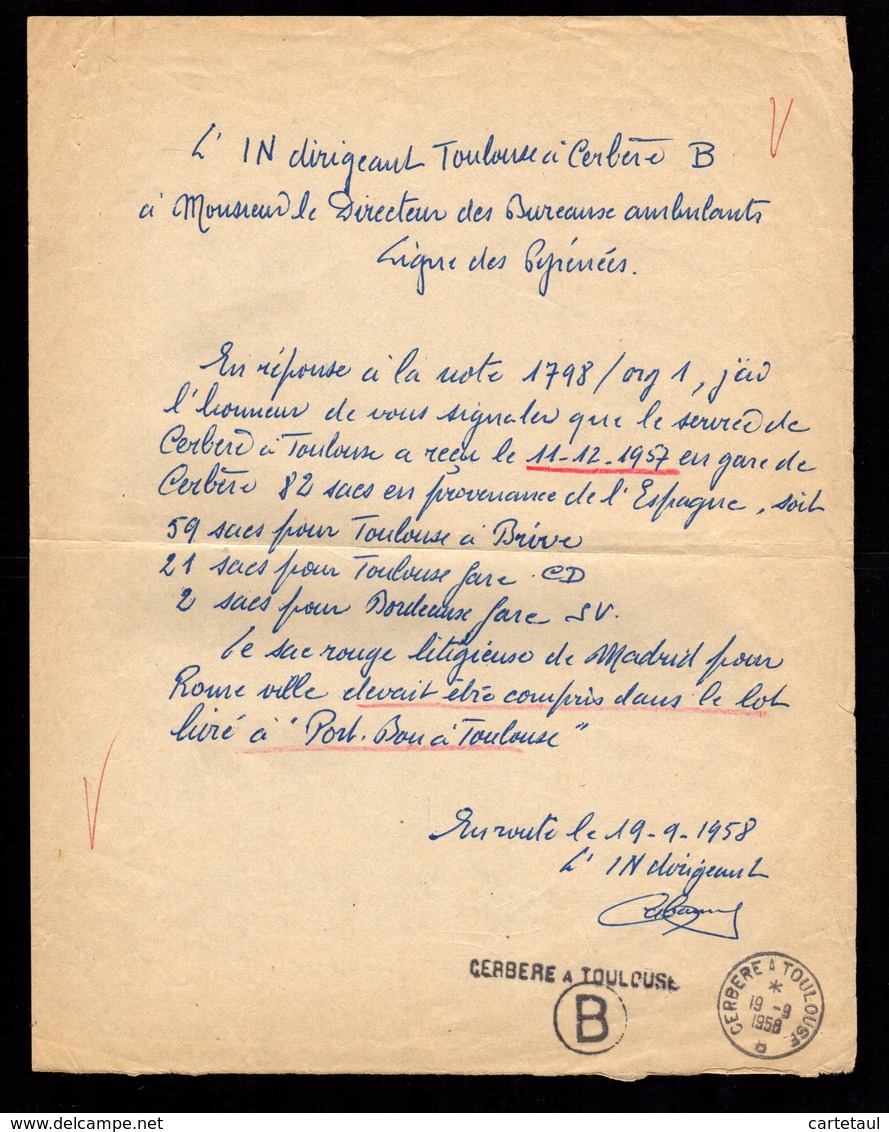 L' IN dirigeant Toulouse à Cerbère B
à Monsieur le Directeur des Bureaux ambulants
Ligne des Pyrénées.
En réponse à la note 1798/org 1, j'ai
l'honneur de vous signaler que le service de
Cerbère à Toulouse a reçu le 11-12-1957 en gare de
Cerbère 82 sacs en provenance de l'Espagne, soit
59 sacs pour Toulouse à Brive
21 sacs pour Toulouse gare CD
2 sacs pour Bordeaux gare SV.
Le sac rouge litigieux de Madrid pour
Rome ville devait être compris dans le lot
livré à "Port. Bou à Toulouse"
En route le 19-9-1958
L' IN dirigeant
CERBERE A TOULOUSE
B
CERBERE A TOULOUSE
19 -9
1958
B
delcampe.net
cartetaul